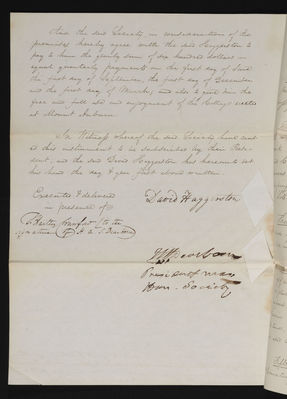 And the said Society in consideration of the
premises hereby agree with the said Haggerston to
pay to him the yearly sum of six hundred dollars in
equal quarterly payments on the first day of June
the first day of September, the first day of December
and the first day of March, and also to give him the
free and full use and enjoyment of the Cottage
at Mount Auburn.
In Witness whereof the said Society have caused
this instrument to be subscribed by their Presi-
dent, and the said David Haggerston has hereunto set
his hand the day & year first above written.
Executed & delivered
in presence of
to the
signature of H A S Dearborn
David Haggerston
H A S Dearborn
President of Mass
Hor. Society